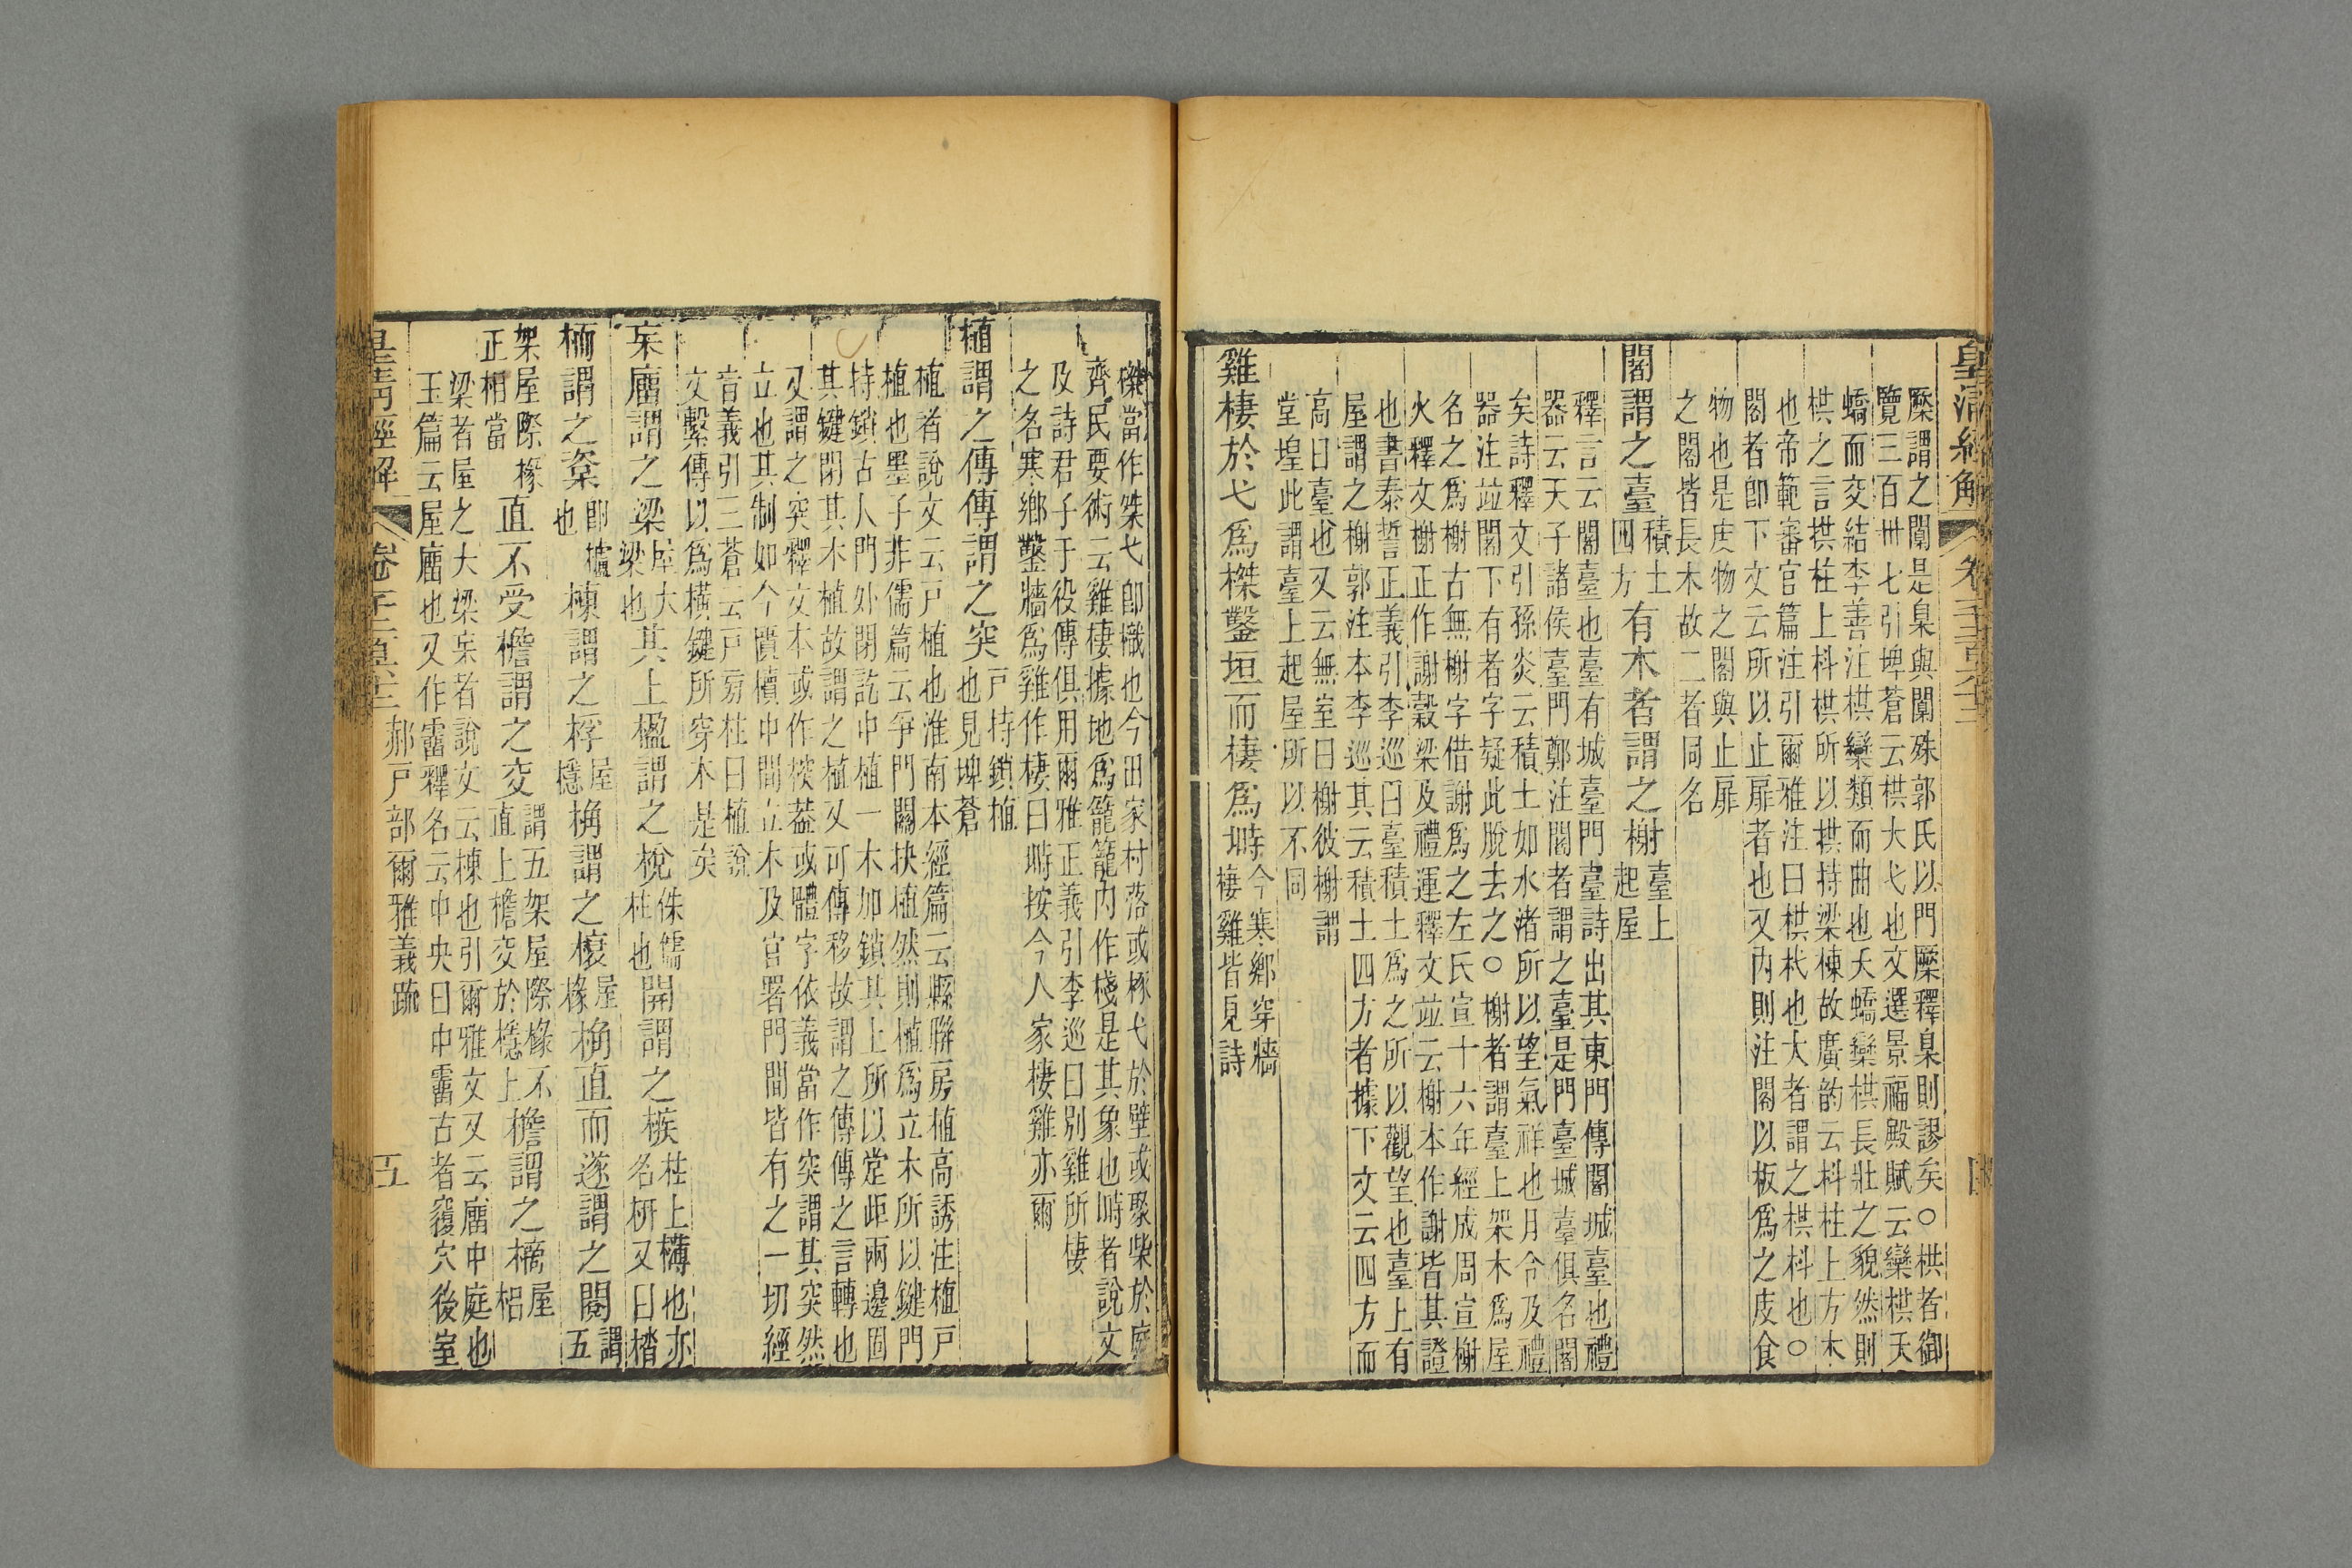 皇清經解 卷
橜謂之闑是臬與闑殊郭氏以門橜釋臬則謬矣○栱者御
覽三百卅七引埤蒼云栱大弋也文選景福殿賦云欒栱夭
蟜而交結李善注栱欒類而曲也夭蟜欒栱長壯之貌然則
栱之言拱柱上枓栱栱所以拱持梁棟故廣韵云枓柱上方木
也帝範審官篇注引爾雅注曰栱杙也大者謂之栱枓也○
閣者卽下文云所以止扉者也又內則注閣以板爲之庋食
物也是庋物之閣與止扉
之閣皆長木故二者同名
闍謂之臺積土四方有木者謂之榭臺上起屋
釋言云闍臺也臺有城臺門臺詩出其東門傳闍城臺也禮
器云天子諸侯臺門鄭注闍者謂之臺是門臺城臺俱名闍
矣詩釋文引孫炎云積土如水渚所以望氣祥也月令及禮
器注竝闍下有者字疑此脫去之○榭者謂臺上架木爲屋
名之爲榭古無榭字借謝爲之左氏宣十六年經成周宣榭
火釋文榭正作謝穀梁及禮運釋文竝云榭本作謝皆其證
也書泰誓正義引李巡曰臺積土爲之所以觀望也臺上有
屋謂之榭郭注本李巡其云積土四方者據下文云四方而
高曰臺也又云無室曰榭彼榭謂
堂堭此謂臺上起屋所以不同
雞棲於弋爲榤鑿垣而棲爲塒今寒鄉穿牆棲雞皆見詩
榤當作桀弋卽樴也今田家村落或椓弋於壁或聚柴於庭
齊民要術云雞棲據地爲籠籠內作棧是其象也塒者說文
及詩君子于役傳俱用爾雅正義引李巡曰別雞所棲
之名寒鄉鑿牆爲雞作棲曰塒按今人家棲雞亦爾
植謂之傳傳謂之突戶持鎖植也見埤蒼
植者說文云戶植也淮南本經篇云縣聯房植高誘注植戶
植也墨子非儒篇云爭門關抉植然則植爲立木所以鍵門
持鎖古人門外閉訖中植一木加鎖其上所以定歫兩邊固
其鍵閉其木植故謂之植又可傳移故謂之傳傳之言轉也
又謂之突釋文本或作揬葢或體字依義當作突謂其突然
立也其制如今匱櫝中間立木及官署門間皆有之一切經
音義引三蒼云戶旁柱曰植說
文繫傳以爲橫鍵所穿木是矣
杗廇謂之梁屋大梁也其上楹謂之梲侏儒柱也開謂之槉柱上欂也亦名枅又曰楷
栭謂之楶卽櫨也棟謂之桴屋檼桷謂之榱屋椽桷直而遂謂之閱謂五
架屋際椽正相當直不受檐謂之交謂五架屋際椽不直上檐交於檼上檐謂之樀屋梠
梁者屋之大梁杗者說文云棟也引爾雅文又云廇中庭也
玉篇云屋廇也又作霤釋名云中央曰中霤古者覆穴後室
皇清經解 卷 郝戶部爾雅義疏 五